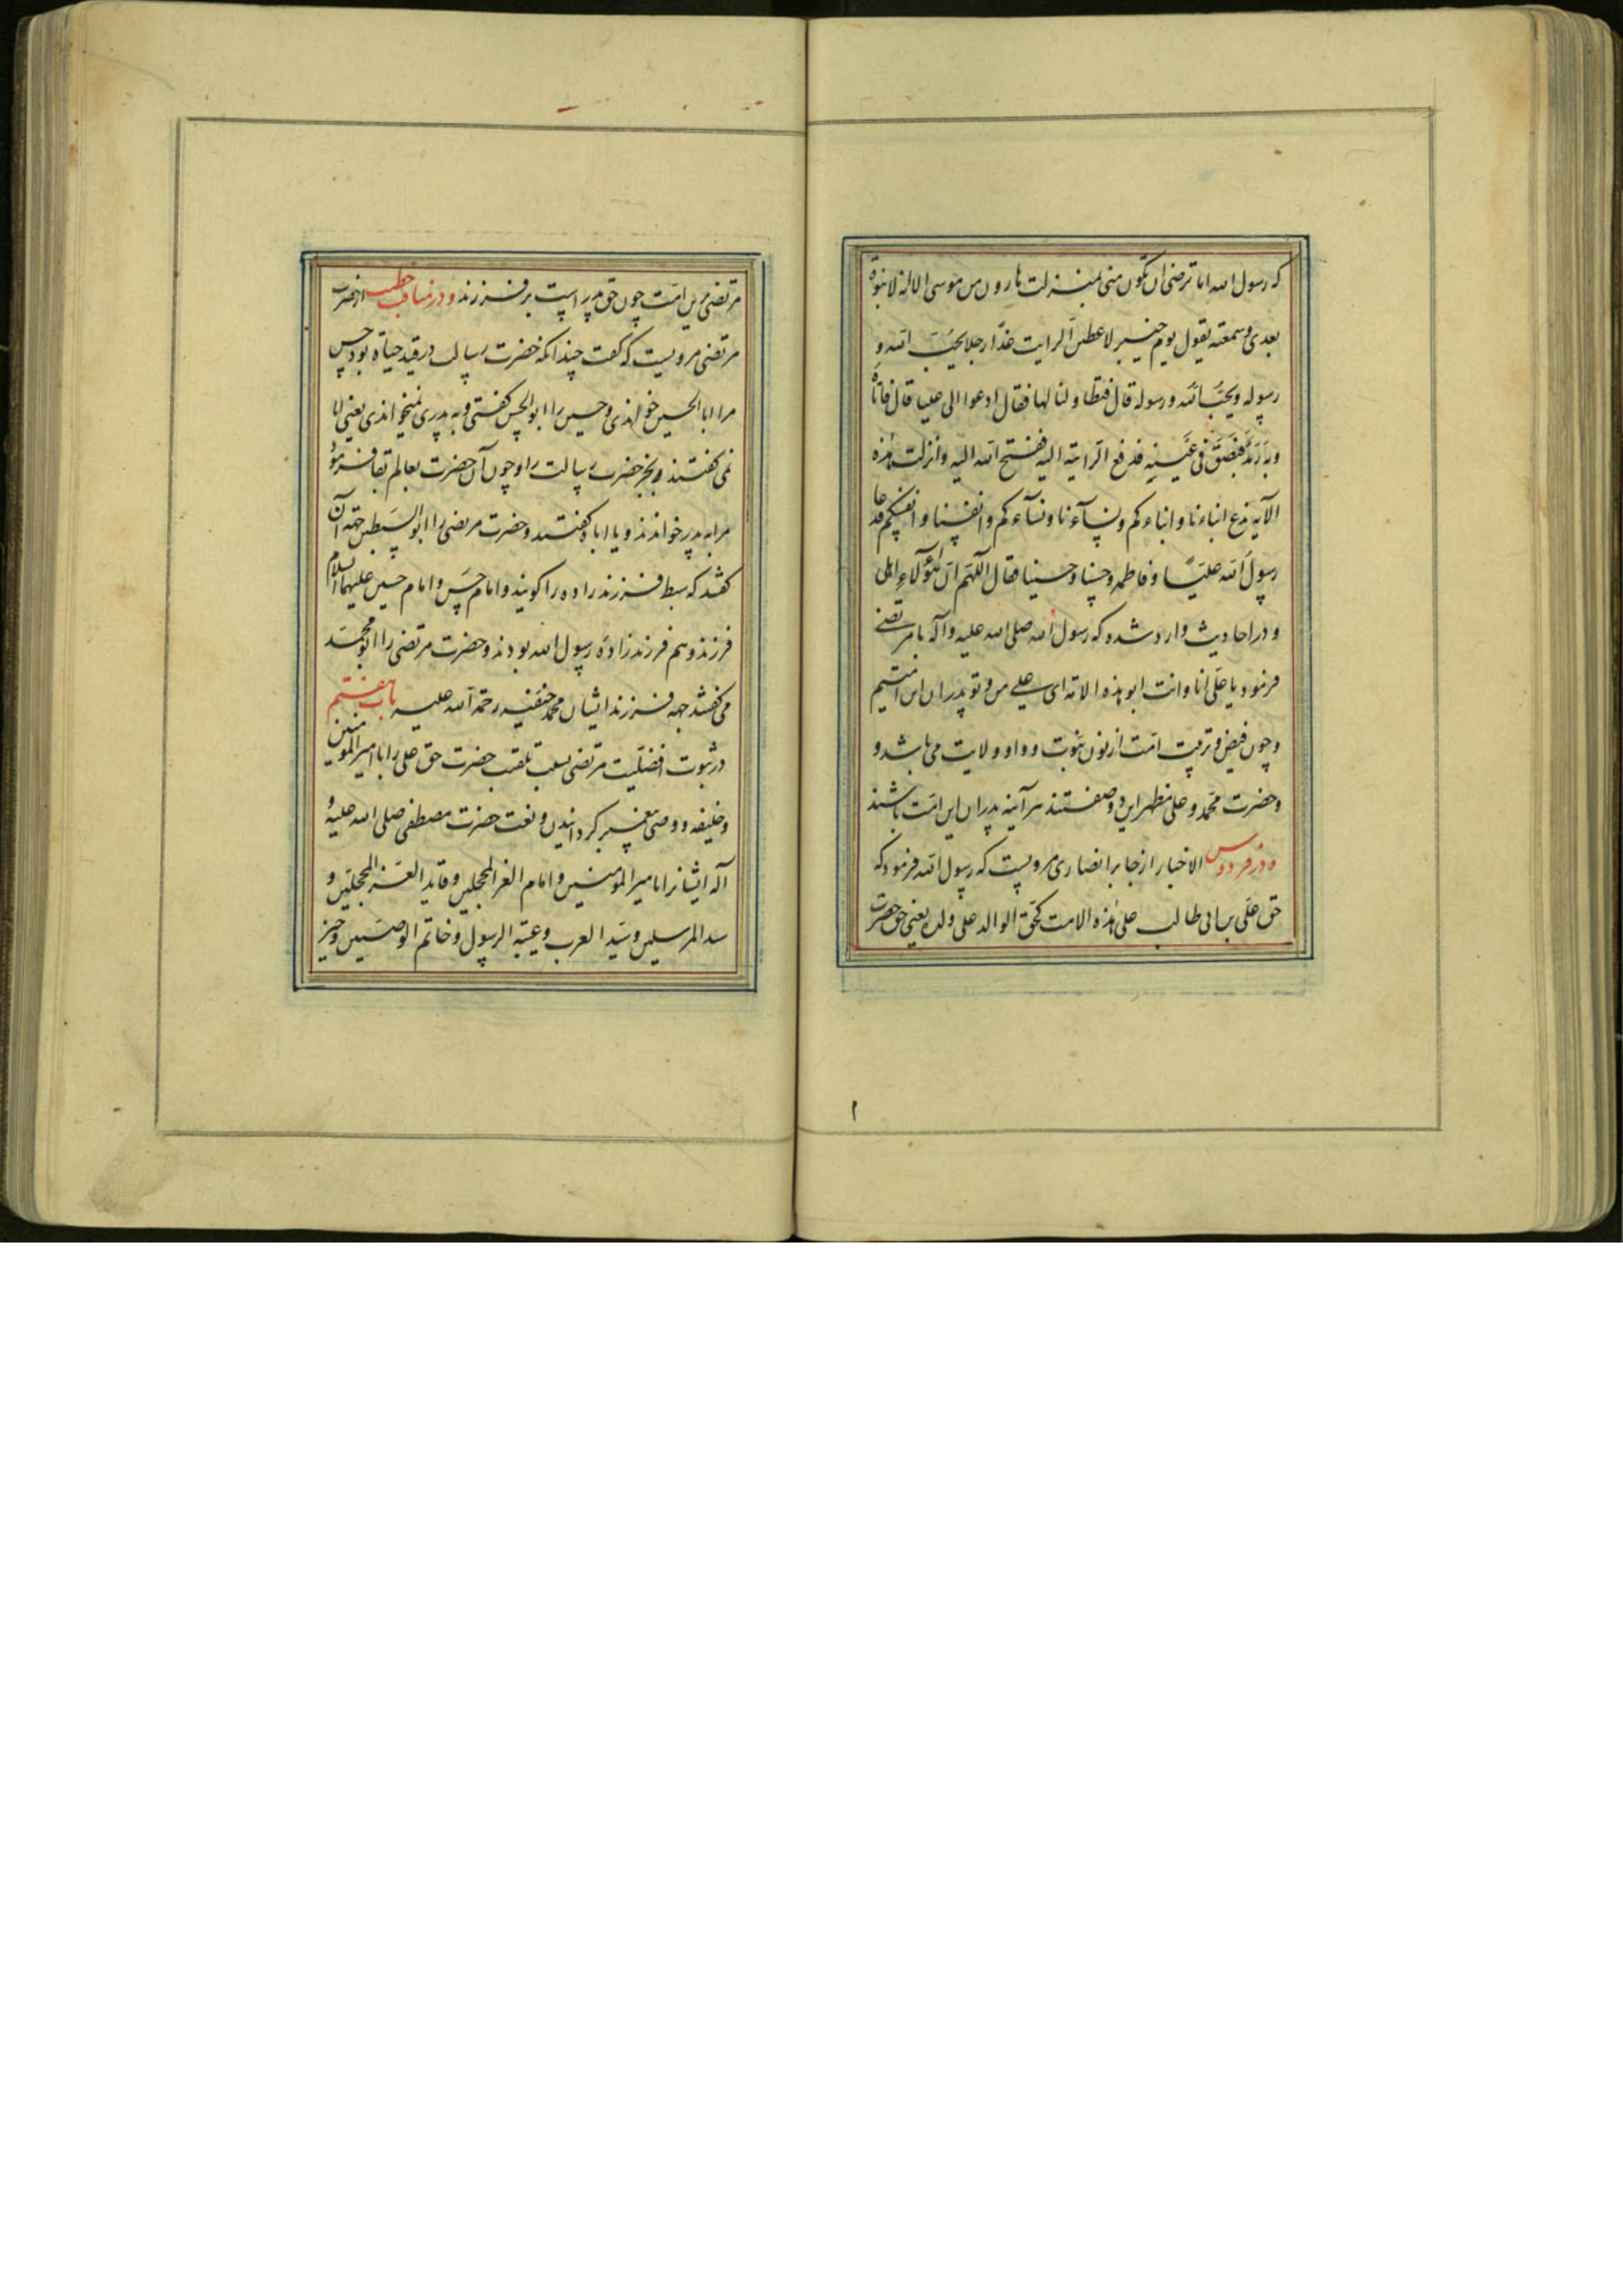 که رسول الله اما ترضی ان تکون منی بمنزلت هارون من موسی الا انه لا نبوة
بعدی و سمعته یقول یوم خیبر لاعطین الرایت غدًا رجلا یحبّ الله و
رسوله و یحبّه الله و رسوله قال فتطاولنا لها فقال ادعوا الی علیا قال فاتاه
وبه رمد فبصق فی عینیه فدفع الرایته الیه ففتح الله الیه و انزلت هذه
الآیه ندع ابناءنا و ابناءکم و نسآءنا و نسآءکم و انفسنا و انفسکم فدعا
رسول الله علیّا و فاطمه و حسنا و حسینا فقال اللهم ان هؤلاء اهلی
و در احادیث وارد شده که رسول الله صلی الله علیه و آله با مرتضی
فرمود یا علی انا و انت ابو هذه الامة ای علی من و تو پدران این امتیم
و چون فیض و تربیت امت از نون نبوت و واو ولایت می باشد و
و حضرت محمّد و علی مظهر این دو وصفستند هر آینه پدران این امت باشند
و در فردوس الاخبار از جابر انصاری مرویست که رسول الله فرمود که
حق علی بن ابی طالب علی هذه الامت کحق الوالد علی ولده یعنی حق حضرت
مرتضی برین امّت چون حق پدر است بر فرزند و در مناقب خطیب از حضرت
مرتضی مرویست که گفت چندانکه حضرت رسالت در قید حیاة بود حسن
مرا ابا الحسین خواندی و حسین را ابو الحسن گفتی و به پدری نمیخواندی یعنی ابا
نمی گفتند و بجز حضرت رسالت را و چون آن حضرت بعالم بقا فرمود
مرا به پدر خواندند و یا ابا گفتند و حضرت مرتضی را ابو السبطین جهة آن
گفتند که سبط فرزندزاده را گویند و امام حسن و امام حسین علیهما السلام
فرزند و هم فرزندزادهٔ رسول الله بودند و حضرت مرتضی را ابو محمّد
می گفتند جهه فرزند ایشان محمد حنفیه رحمة الله علیه باب هفتم
در ثبوت افضلیت مرتضی بسبب تلقب حضرت حق علی را با امیر المومنین
و خلیفه و وصی پیغمبر گردانیدن و نعت حضرت مصطفی صلی الله علیه و
آله ایشانرا با امیر المومنین و امام الغر المحجلین و قاید الغر المحجلین و
سید المرسلین و سید العرب و عیبة الرسول و خاتم الوصیین و خیر